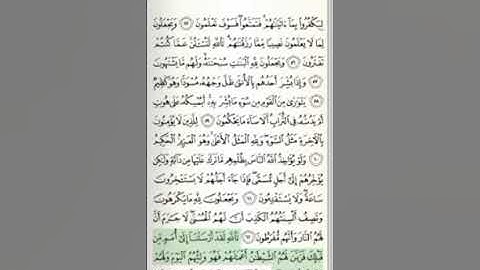 لِيَكْفُرُوا۟ بِمَآ ءَاتَيْنَٰهُمْ فَتَمَتَّعُوا۟ فَسَوْفَ تَعْلَمُونَ ٥٥ وَيَجْعَلُونَ
لِمَا لَا يَعْلَمُونَ نَصِيبًا مِّمَّا رَزَقْنَٰهُمْ تَٱللَّهِ لَتُسْـَٔلُنَّ عَمَّا كُنتُمْ
تَفْتَرُونَ ٥٦ وَيَجْعَلُونَ لِلَّهِ ٱلْبَنَٰتِ سُبْحَٰنَهُۥ وَلَهُم مَّا يَشْتَهُونَ
٥٧ وَإِذَا بُشِّرَ أَحَدُهُم بِٱلْأُنثَىٰ ظَلَّ وَجْهُهُۥ مُسْوَدًّا وَهُوَ كَظِيمٌ
٥٨ يَتَوَٰرَىٰ مِنَ ٱلْقَوْمِ مِن سُوٓءِ مَا بُشِّرَ بِهِۦٓ أَيُمْسِكُهُۥ عَلَىٰ هُونٍ
أَمْ يَدُسُّهُۥ فِى ٱلتُّرَابِ أَلَا سَآءَ مَا يَحْكُمُونَ ٥٩ لِلَّذِينَ لَا يُؤْمِنُونَ
بِٱلْءَاخِرَةِ مَثَلُ ٱلسَّوْءِ وَلِلَّهِ ٱلْمَثَلُ ٱلْأَعْلَىٰ وَهُوَ ٱلْعَزِيزُ ٱلْحَكِيمُ
٦٠ وَلَوْ يُؤَاخِذُ ٱللَّهُ ٱلنَّاسَ بِظُلْمِهِم مَّا تَرَكَ عَلَيْهَا مِن دَآبَّةٍ وَلَٰكِن
يُؤَخِّرُهُمْ إِلَىٰٓ أَجَلٍ مُّسَمًّى فَإِذَا جَآءَ أَجَلُهُمْ لَا يَسْتَـْٔخِرُونَ
سَاعَةً وَلَا يَسْتَقْدِمُونَ ٦١ وَيَجْعَلُونَ لِلَّهِ مَا يَكْرَهُونَ
وَتَصِفُ أَلْسِنَتُهُمُ ٱلْكَذِبَ أَنَّ لَهُمُ ٱلْحُسْنَىٰ لَا جَرَمَ أَنَّ
لَهُمُ ٱلنَّارَ وَأَنَّهُم مُّفْرَطُونَ ٦٢ تَٱللَّهِ لَقَدْ أَرْسَلْنَآ إِلَىٰٓ أُمَمٍ مِّن
قَبْلِكَ فَزَيَّنَ لَهُمُ ٱلشَّيْطَٰنُ أَعْمَٰلَهُمْ فَهُوَ وَلِيُّهُمُ ٱلْيَوْمَ وَلَهُمْ